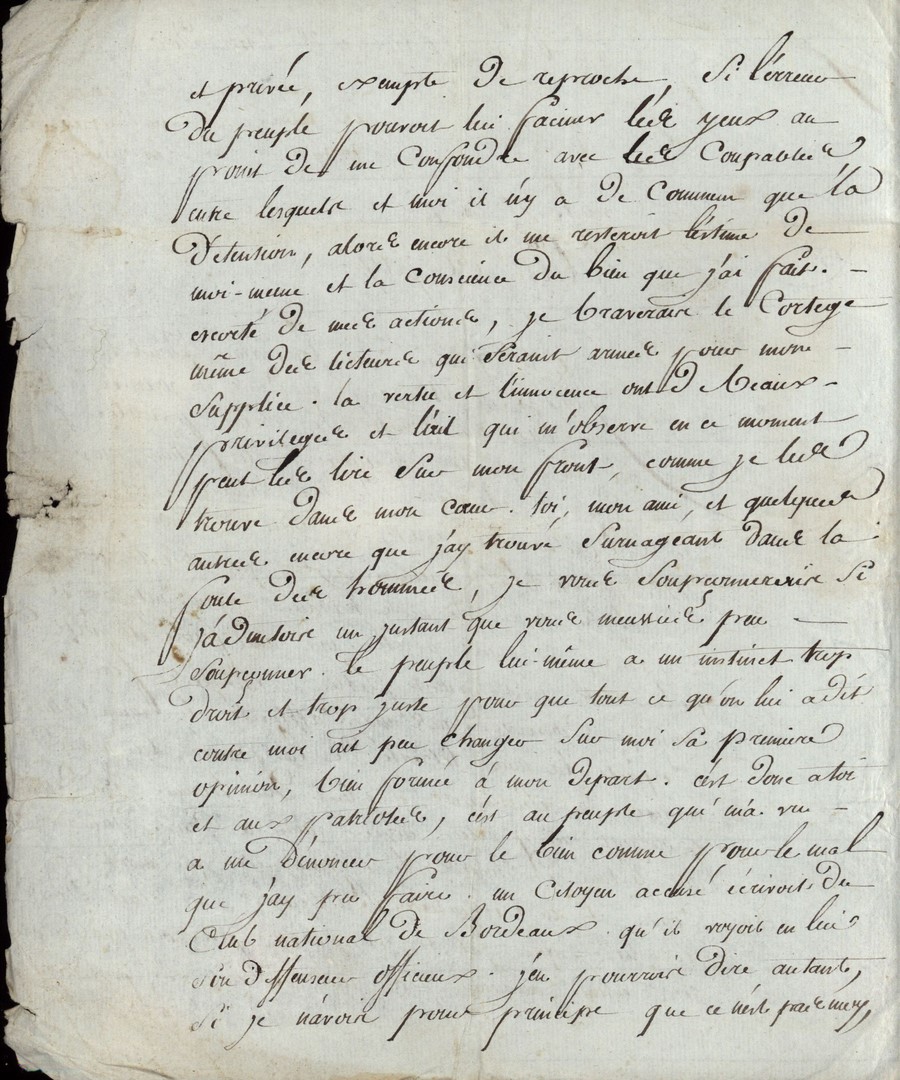 et privée, exempte de reproche, si l'erreur
du peuple pouvoit lui faciner les yeux au
point de me confondre avec les coupables
entre lesquels et moi il n'y a de commun que la
détention, alors encore il me resteroit l'estime de
moi-meme et la conscience du bien que j'ai fait.
escorté de mes actions, je braverais le cortege
même des licteurs qui seraint armés pour mon
supplice. la vertu et l'innocence ont de beaux
privileges et l'œil qui m'observe en ce moment
peut les lire sur mon front, comme je les
trouve dans mon cœur. toi, mon ami, et quelques
autres encore que j'ay trouvé surnageant dans la
foule des hommes, je vous soupconnerois si
j'admettois un instant que vous meussiés peu
soupconner. le peuple lui-même a un instinct trop
droit et trop juste pour que tout ce qu'on lui a dit
contre moi ait peu changer sur moi sa premiere
opinion, bien formée à mon depart. c'est donc a toi
et aux patriotes, c'est au peuple qui m'a vu
a me dénoncer pour le bien comme pour le mal
que j'ay pu faire. un citoyen accusé écrivoit du
Club national de Bordeaux qu'il voyoit en lui
son deffenseur officieux. j'en pourrois dire autant,
si je n'avois pour principe que ce n'est pas moy,